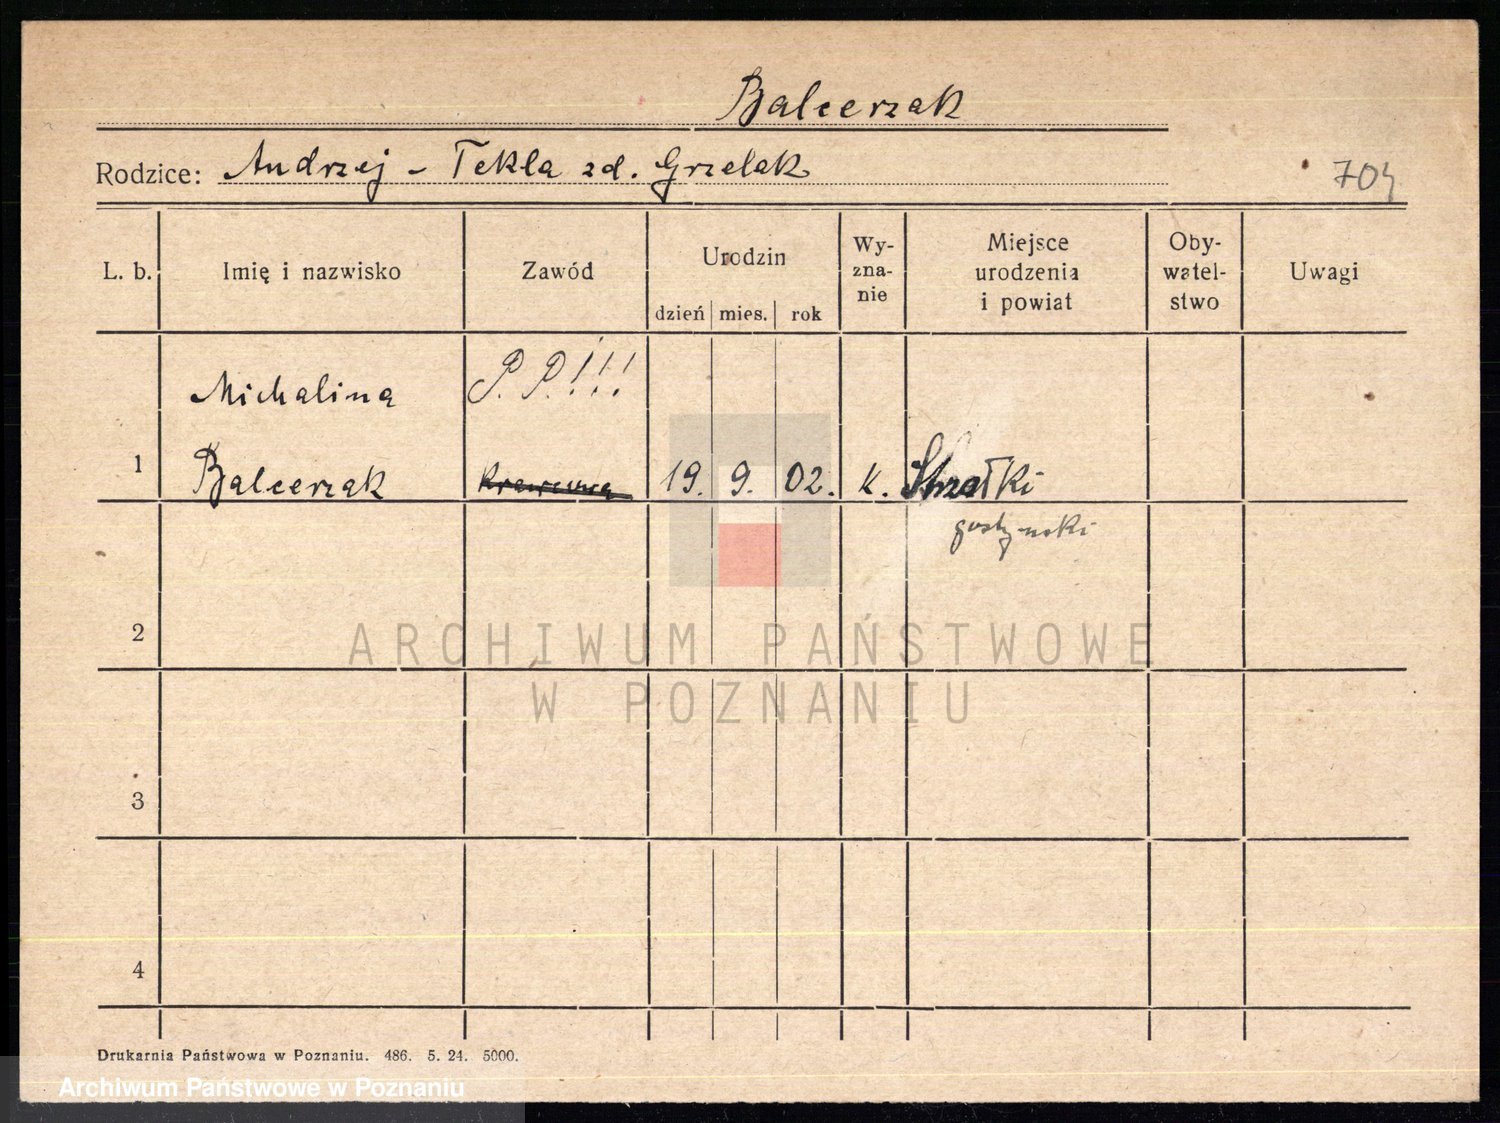 Balcerzak
Rodzice: Andrzej - Tekla zd. Grzelak
704
L. b. Imię i nazwisko Zawód Urodzin dzień mies. rok Wy-zna-nie Miejsce urodzenia i powiat Oby-watel-stwo Uwagi
Michalina P. P.!!!
1 Balcerzak krawcowa 19. 9. 02. k. Strzałki
gostyński
2
ARCHIWUM PAŃSTWOWE
W POZNANIU
3
4
Drukarnia Państwowa w Poznaniu. 486. 5. 24. 5000.
Archiwum Państwowe w Poznaniu